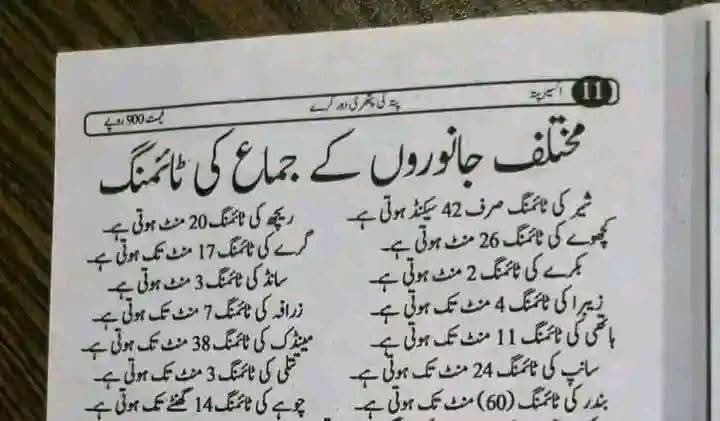 11 اکسیر پتہ پتہ کی پتھری دور کرے قیمت 900 روپے
مختلف جانوروں کے جماع کی ٹائمنگ
شیر کی ٹائمنگ صرف 42 سیکنڈ ہوتی ہے۔
کچھوے کی ٹائمنگ 26 منٹ ہوتی ہے۔
بکرے کی ٹائمنگ 2 منٹ ہوتی ہے۔
زیبرا کی ٹائمنگ 4 منٹ تک ہوتی ہے۔
ہاتھی کی ٹائمنگ 11 منٹ تک ہوتی ہے۔
سانپ کی ٹائمنگ 24 منٹ تک ہوتی ہے۔
بندر کی ٹائمنگ (60) منٹ تک ہوتی ہے۔
ریچھ کی ٹائمنگ 20 منٹ ہوتی ہے۔
گرے کی ٹائمنگ 17 منٹ تک ہوتی ہے۔
سانڈ کی ٹائمنگ 3 منٹ ہوتی ہے۔
زرافہ کی ٹائمنگ 7 منٹ تک ہوتی ہے۔
مینڈک کی ٹائمنگ 38 منٹ تک ہوتی ہے۔
تتلی کی ٹائمنگ 3 منٹ تک ہوتی ہے۔
چوہے کی ٹائمنگ 14 گھنٹے تک ہوتی ہے۔